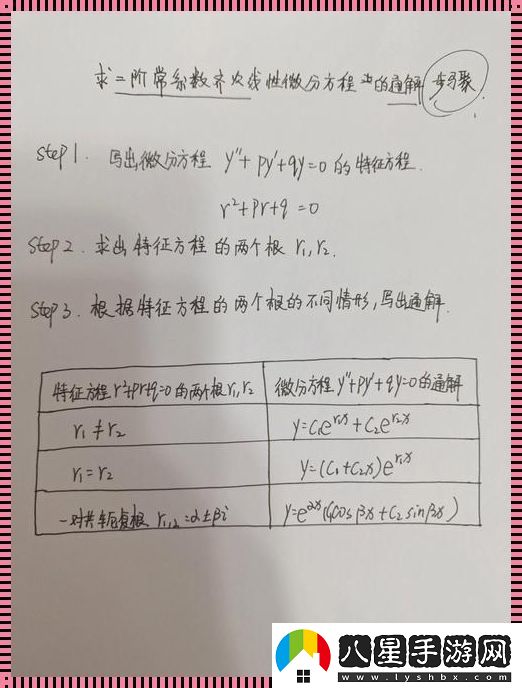 求二阶常系数齐次线性微分方程的通解 步骤
Step 1. 写出微分方程 y''+py'+qy=0 的特征方程.
r²+pr+q=0
Step 2. 求出特征方程的两个根 r₁,r₂.
Step 3. 根据特征方程的两个根的不同情形,写出通解.
特征方程 r²+pr+q=0 的两个根 r₁,r₂ 微分方程 y''+py'+qy=0 的通解
r₁≠r₂ y=C₁e^{r₁x}+C₂e^{r₂x}
r₁=r₂ y=(C₁+C₂x)e^{r₁x}
一对共轭复根 r₁,₂=α±βi y=e^{αx}(C₁cosβx+C₂sinβx)
八星手游网
www.lyshbx.com